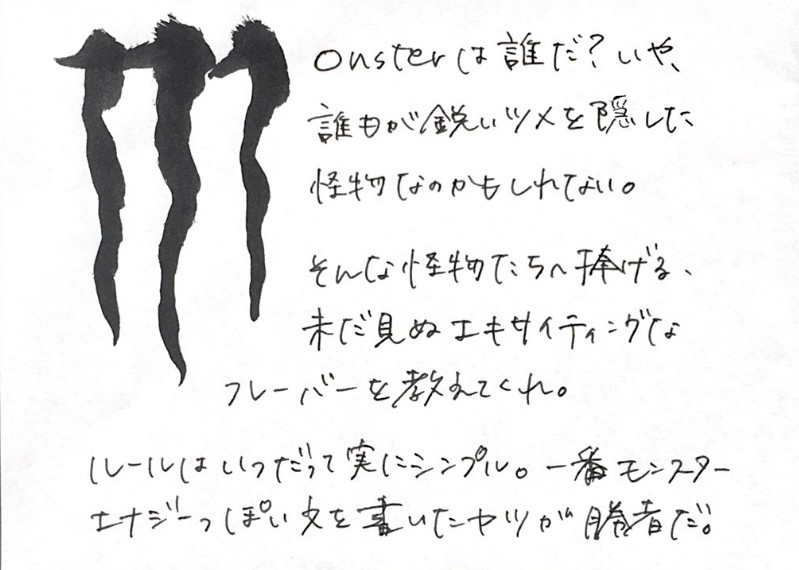 Onsterは誰だ?いや、
誰もが鋭いツメを隠した
怪物なのかもしれない。
そんな怪物たちへ捧げる、
未だ見ぬエキサイティングな
フレーバーを教えてくれ。
ルールはいつだって実にシンプル。一番モンスター
エナジーっぽい文を書いたヤツが勝者だ。